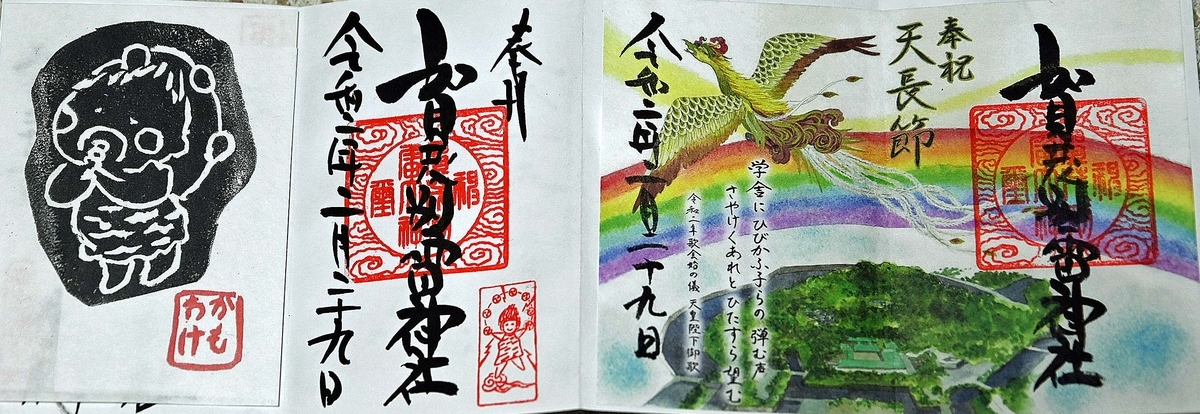 奉祝
天長節
賀茂別雷神社
学舎にひびかふ子らの弾む声
さやけくあれとひたすら望む
令和二年歌会始の儀 天皇陛下御歌
令和二年二月二十九日
奉拝
賀茂別雷神社
令和二年二月二十九日
がも
わけ